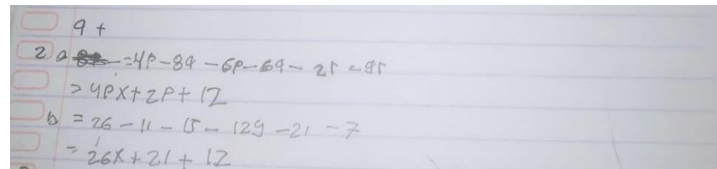 9 +
2) a = 4p - 8q - 6p - 6q - 2r - 9r
= 4px + 2p + 12
b = 26 - 11 - 15 - 129 - 21 - 7
= 26x + 21 + 12